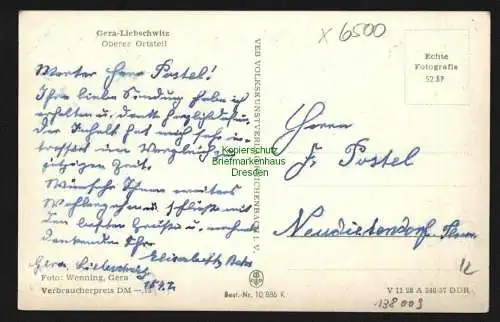 Gera-Liebschwitz
Oberer Ortsteil
x 6500
Echte
Fotografie
5257
Werter Herr Postel!
Ihre liebe Sendung habe ich
erhalten u. danke herzlich dafür.
Der Inhalt hat mich sehr in-
im Vergleich zur
jetzigen Zeit.
Wünsche Ihnen weiteres
Wohlergehen u. schließe mit
den besten Grüßen u.
Ihre
Elisabeth
Gera Liebschwitz
VEB VOLKSKUNSTVERLAG REICHENBACH I. V.
Kopierschutz
Briefmarkenhaus
Dresden
Herrn
F. Postel
Neudietendorf Thür.
12
Foto: Wenning, Gera
Verbraucherpreis DM
Best.-Nr. 10 886 K
V 11 28 A 240-57 DDR
138 009